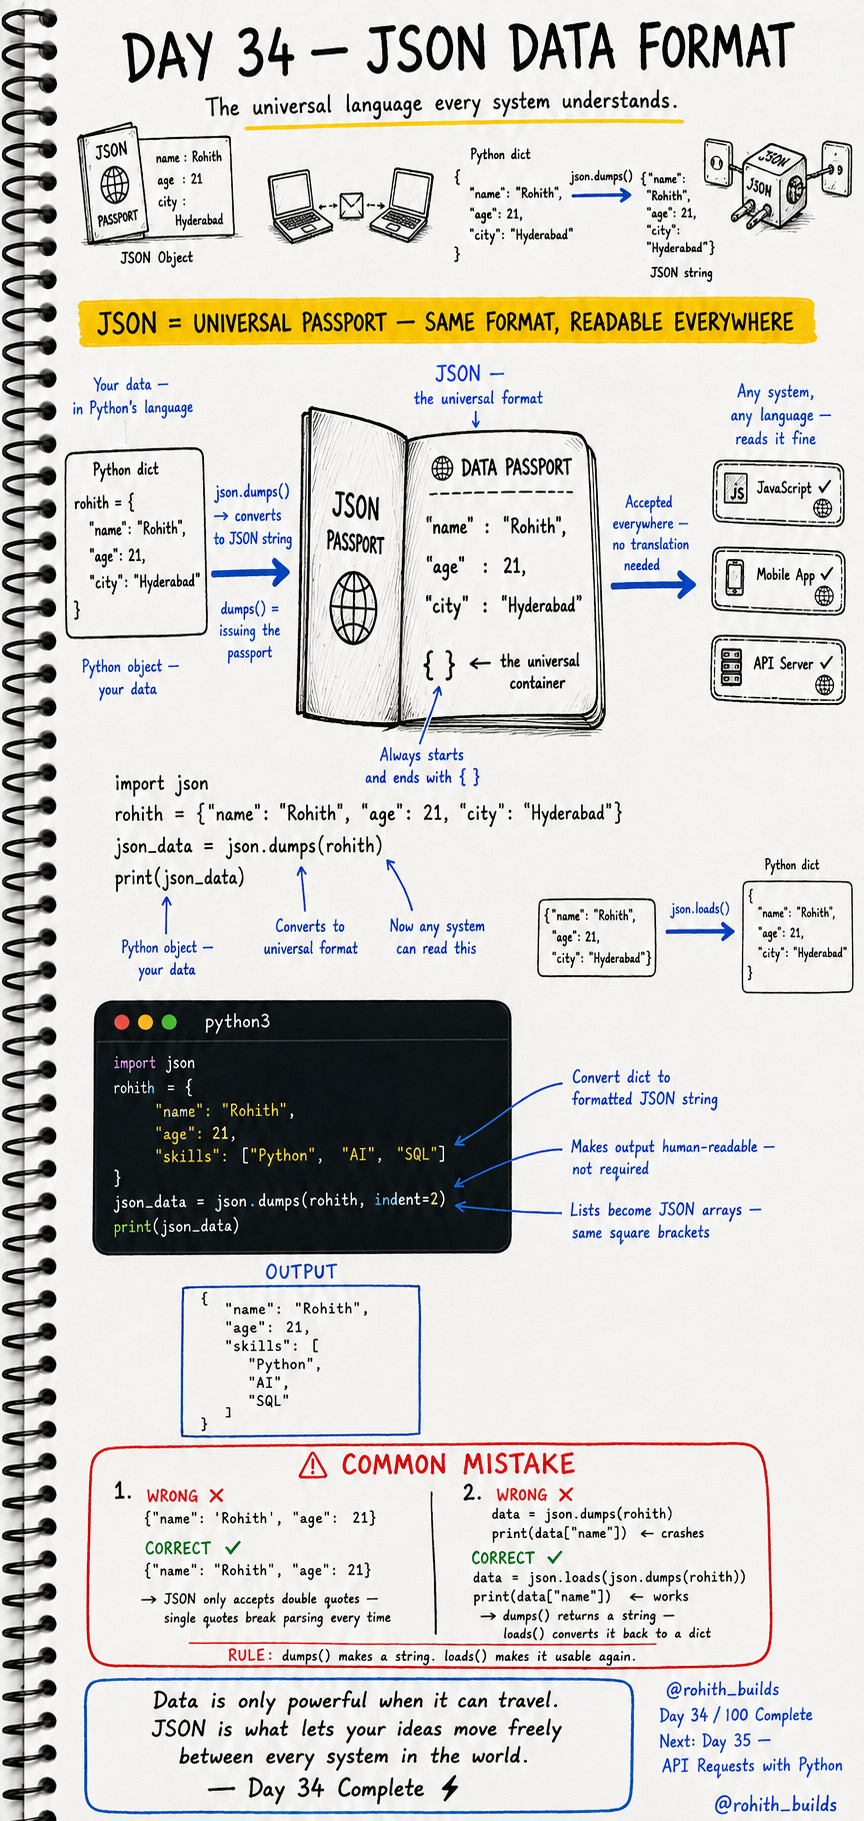 DAY 34 — JSON DATA FORMAT
The universal language every system understands.
JSON
PASSPORT
name : Rohith
age : 21
city :
Hyderabad
JSON Object
Python dict
{
"name": "Rohith",
"age": 21,
"city": "Hyderabad"
}
json.dumps()
{"name":
"Rohith",
"age": 21,
"city":
"Hyderabad"}
JSON string
JSON
JSON
JSON = UNIVERSAL PASSPORT — SAME FORMAT, READABLE EVERYWHERE
Your data —
in Python's language
Python dict
rohith = {
"name": "Rohith",
"age": 21,
"city": "Hyderabad"
}
Python object —
your data
json.dumps()
→ converts
to JSON string
dumps() =
issuing the
passport
JSON —
the universal format
JSON
PASSPORT
DATA PASSPORT
"name" : "Rohith",
"age" : 21,
"city" : "Hyderabad"
{ } ← the universal
container
Always starts
and ends with { }
Accepted
everywhere —
no translation
needed
Any system,
any language —
reads it fine
JS JavaScript ✓
Mobile App ✓
API Server ✓
import json
rohith = {"name": "Rohith", "age": 21, "city": "Hyderabad"}
json_data = json.dumps(rohith)
print(json_data)
Python object —
your data
Converts to
universal format
Now any system
can read this
{"name": "Rohith",
"age": 21,
"city": "Hyderabad"}
json.loads()
Python dict
{
"name": "Rohith",
"age": 21,
"city": "Hyderabad"
}
python3
import json
rohith = {
"name": "Rohith",
"age": 21,
"skills": ["Python", "AI", "SQL"]
}
json_data = json.dumps(rohith, indent=2)
print(json_data)
Convert dict to
formatted JSON string
Makes output human-readable —
not required
Lists become JSON arrays —
same square brackets
OUTPUT
{
"name": "Rohith",
"age": 21,
"skills": [
"Python",
"AI",
"SQL"
]
}
COMMON MISTAKE
1. WRONG ✗
{"name": 'Rohith', "age": 21}
CORRECT ✓
{"name": "Rohith", "age": 21}
→ JSON only accepts double quotes —
single quotes break parsing every time
2. WRONG ✗
data = json.dumps(rohith)
print(data["name"]) ← crashes
CORRECT ✓
data = json.loads(json.dumps(rohith))
print(data["name"]) ← works
→ dumps() returns a string —
loads() converts it back to a dict
RULE: dumps() makes a string. loads() makes it usable again.
Data is only powerful when it can travel.
JSON is what lets your ideas move freely
between every system in the world.
— Day 34 Complete ⚡
@rohith_builds
Day 34 / 100 Complete
Next: Day 35 —
API Requests with Python
@rohith_builds